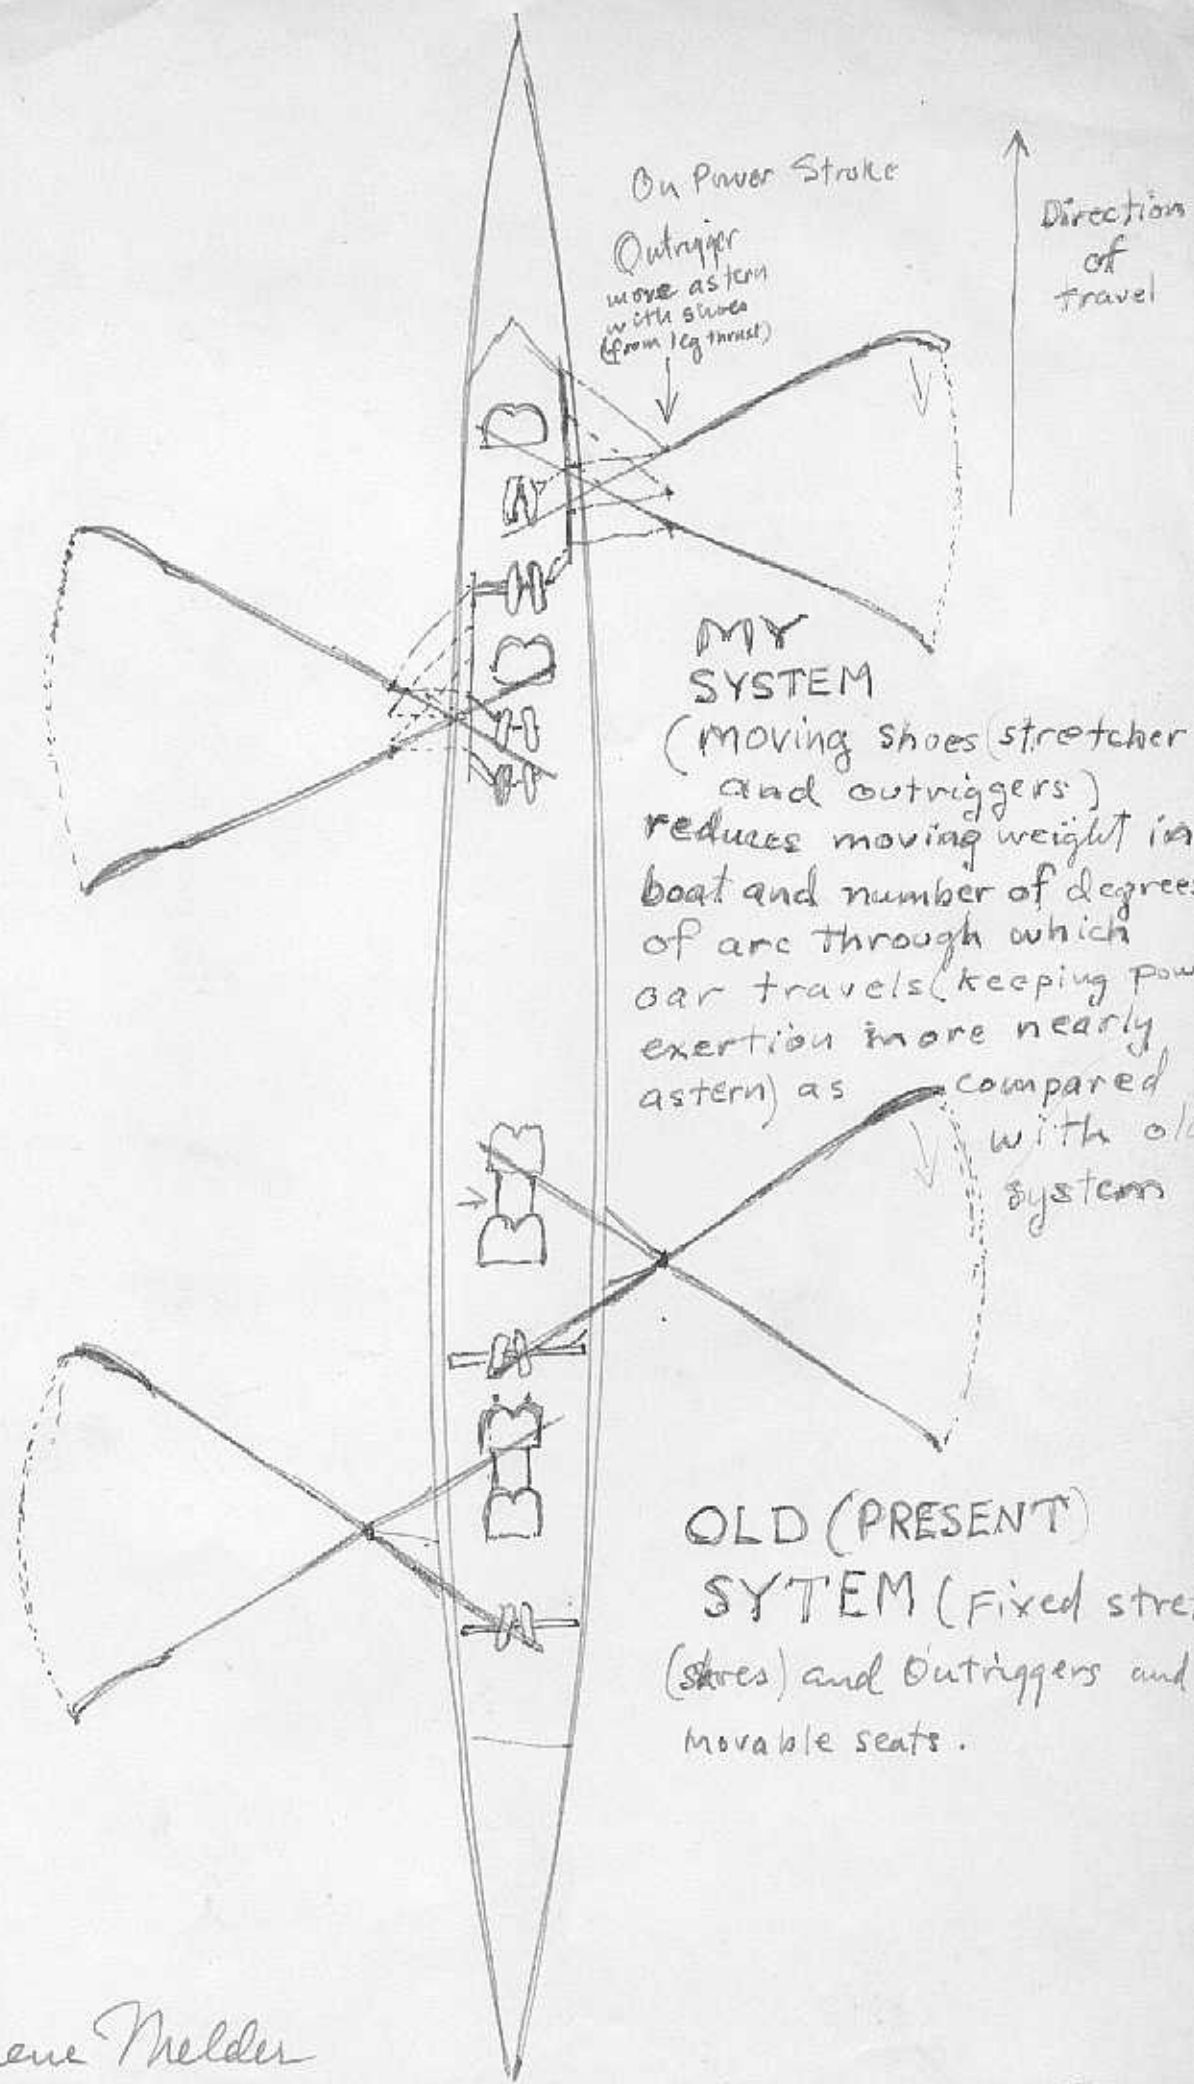 On Power Stroke
Outrigger
move astern
with shoes
(from leg thrust)
Direction
of
travel
MY
SYSTEM
(moving shoes (stretcher
and outriggers)
reduces moving weight in
boat and number of degrees
of arc through which
oar travels (keeping pow
exertion more nearly
astern) as compared
with old
system
OLD (PRESENT)
SYTEM (Fixed stre
(shoes) and Outriggers and
movable seats.
ene Melder